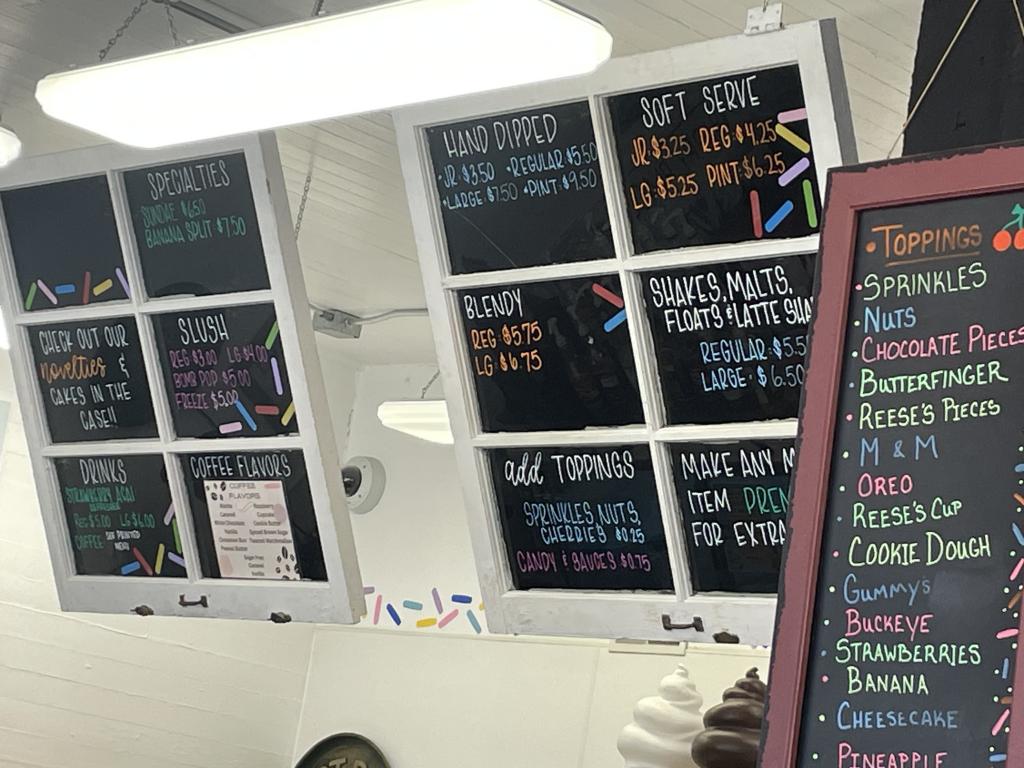 SPECIALTIES
SUNDAE $6.50
BANANA SPLIT $7.50
CHECK OUT OUR
Novelties &
CAKES IN THE
CASE!!
SLUSH
REG $3.00 LG $4.00
BOMB POP $5.00
FREEZE $5.00
DRINKS
STRAWBERRY ACAI
REFRESHER
REG $5.00 LG $6.00
COFFEE SEE PRINTED
MENU
COFFEE FLAVORS
COFFEE
FLAVORS
Raspberry
Caramel Cupcake
White Chocolate Cookie Butter
Vanilla Spiced Brown Sugar
Cinnamon Bun Toasted Marshmallow
Peanut Butter
Sugar Free
Caramel
Vanilla
HAND DIPPED
•JR•$3.50 •REGULAR•$5.50
•LARGE•$7.50 •PINT•$9.50
SOFT SERVE
JR•$3.25 REG•$4.25
LG•$5.25 PINT•$6.25
BLENDY
REG•$5.75
LG•$6.75
SHAKES, MALTS,
FLOATS & LATTE SHA
REGULAR•$5.5
LARGE•$6.50
add TOPPINGS
SPRINKLES, NUTS,
CHERRIES $0.25
CANDY & SAUCES $0.75
MAKE ANY M
ITEM PREM
FOR EXTRA
•TOPPINGS
•SPRINKLES
•NUTS
•CHOCOLATE PIECES
•BUTTERFINGER
•REESE'S PIECES
•M & M
•OREO
•REESE'S CUP
•COOKIE DOUGH
•GUMMY'S
•BUCKEYE
•STRAWBERRIES
•BANANA
•CHEESECAKE
•PINEAPPLE